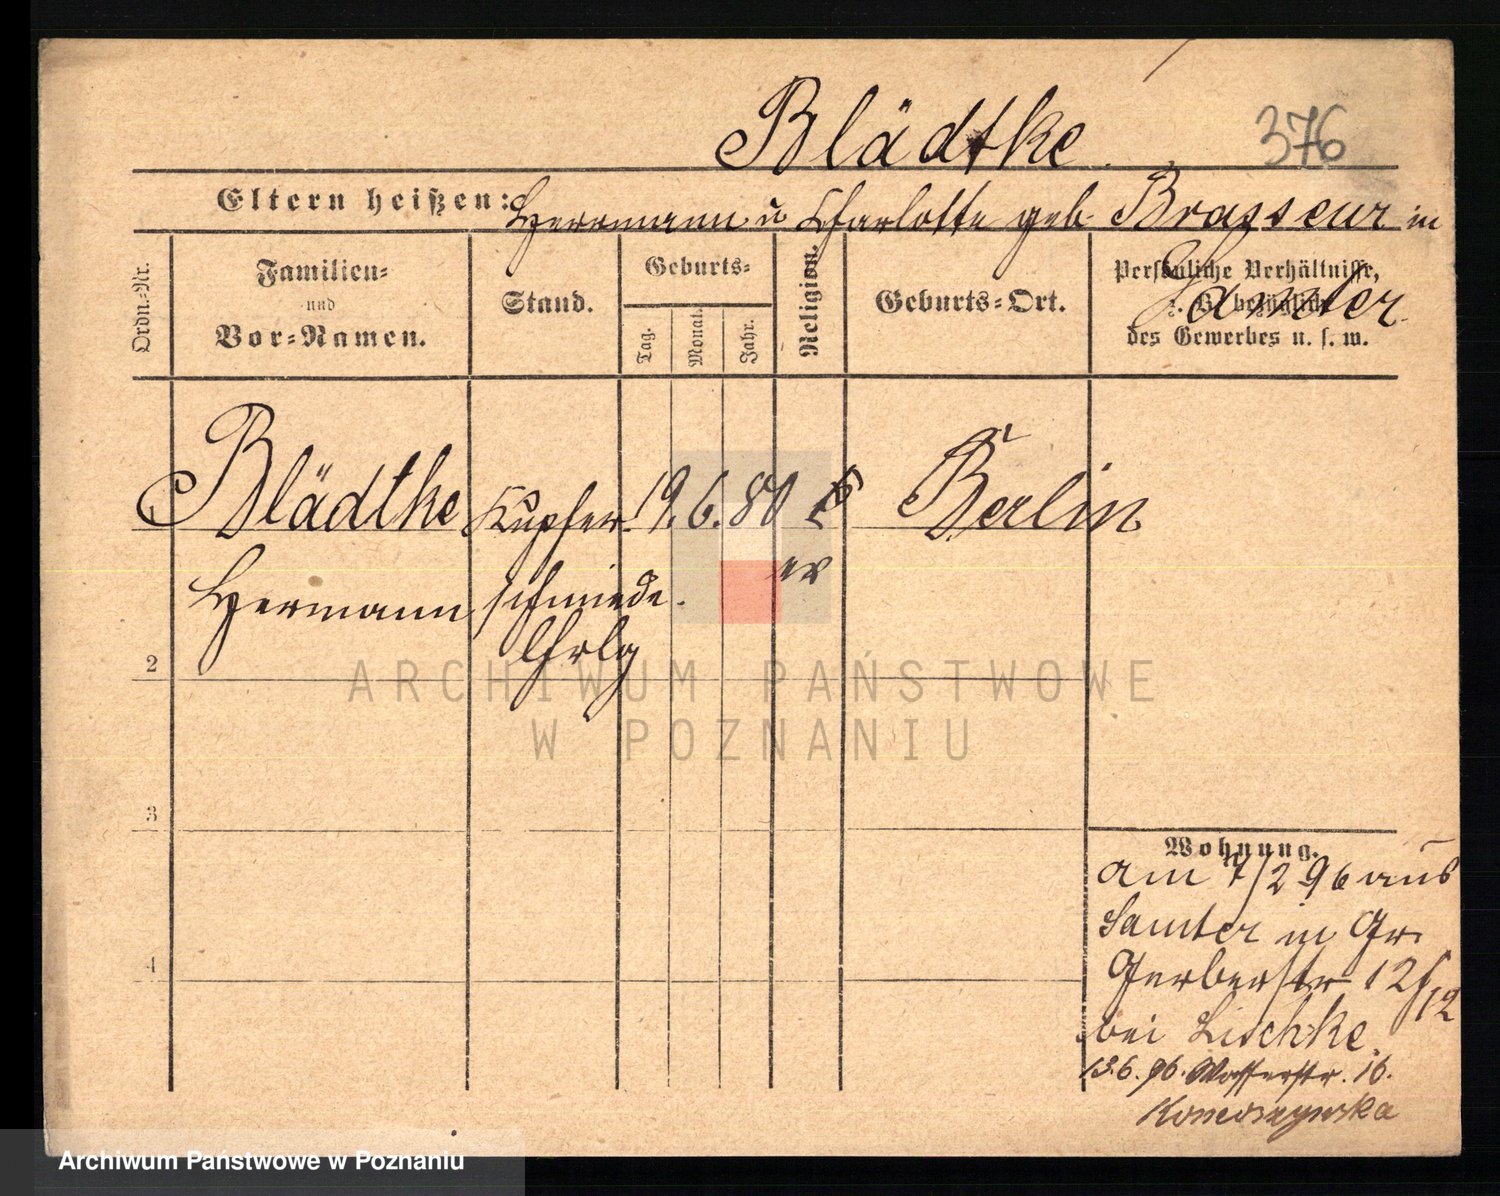 Blädtke.
376
Eltern heißen: Herrmann u Charlotte geb. Brasseur in
Samter.
Ordn.=Nr.
Familien=
und
Vor=Namen.
Stand.
Geburts=
Tag.
Monat.
Jahr.
Religion.
Geburts=Ort.
Persönliche Verhältnisse,
z. B. bezüglich
des Gewerbes u. s. w.
Blädtke Kupfer- 19. 6. 80 Berlin
Hermann schmiede. ev
Lhrlg
2
3
4
Wohnung.
am 7/2 96 aus
Samter in Gr.
Gerberstr 12
bei Lischke.
13.6.96. Wasserstr. 16.
ARCHIWUM PAŃSTWOWE
W POZNANIU
Archiwum Państwowe w Poznaniu